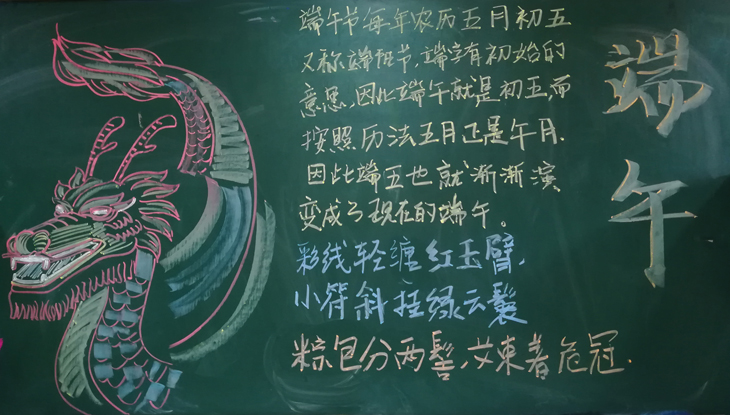 端午节每年农历五月初五
又称端阳节,端字有初始的
意思,因此端午就是初五,而
按照历法五月正是午月.
因此端五也就渐渐演
变成了现在的端午。
彩线轻缠红玉臂,
小符斜挂绿云鬟
粽包分两髻,艾束著危冠.
端午